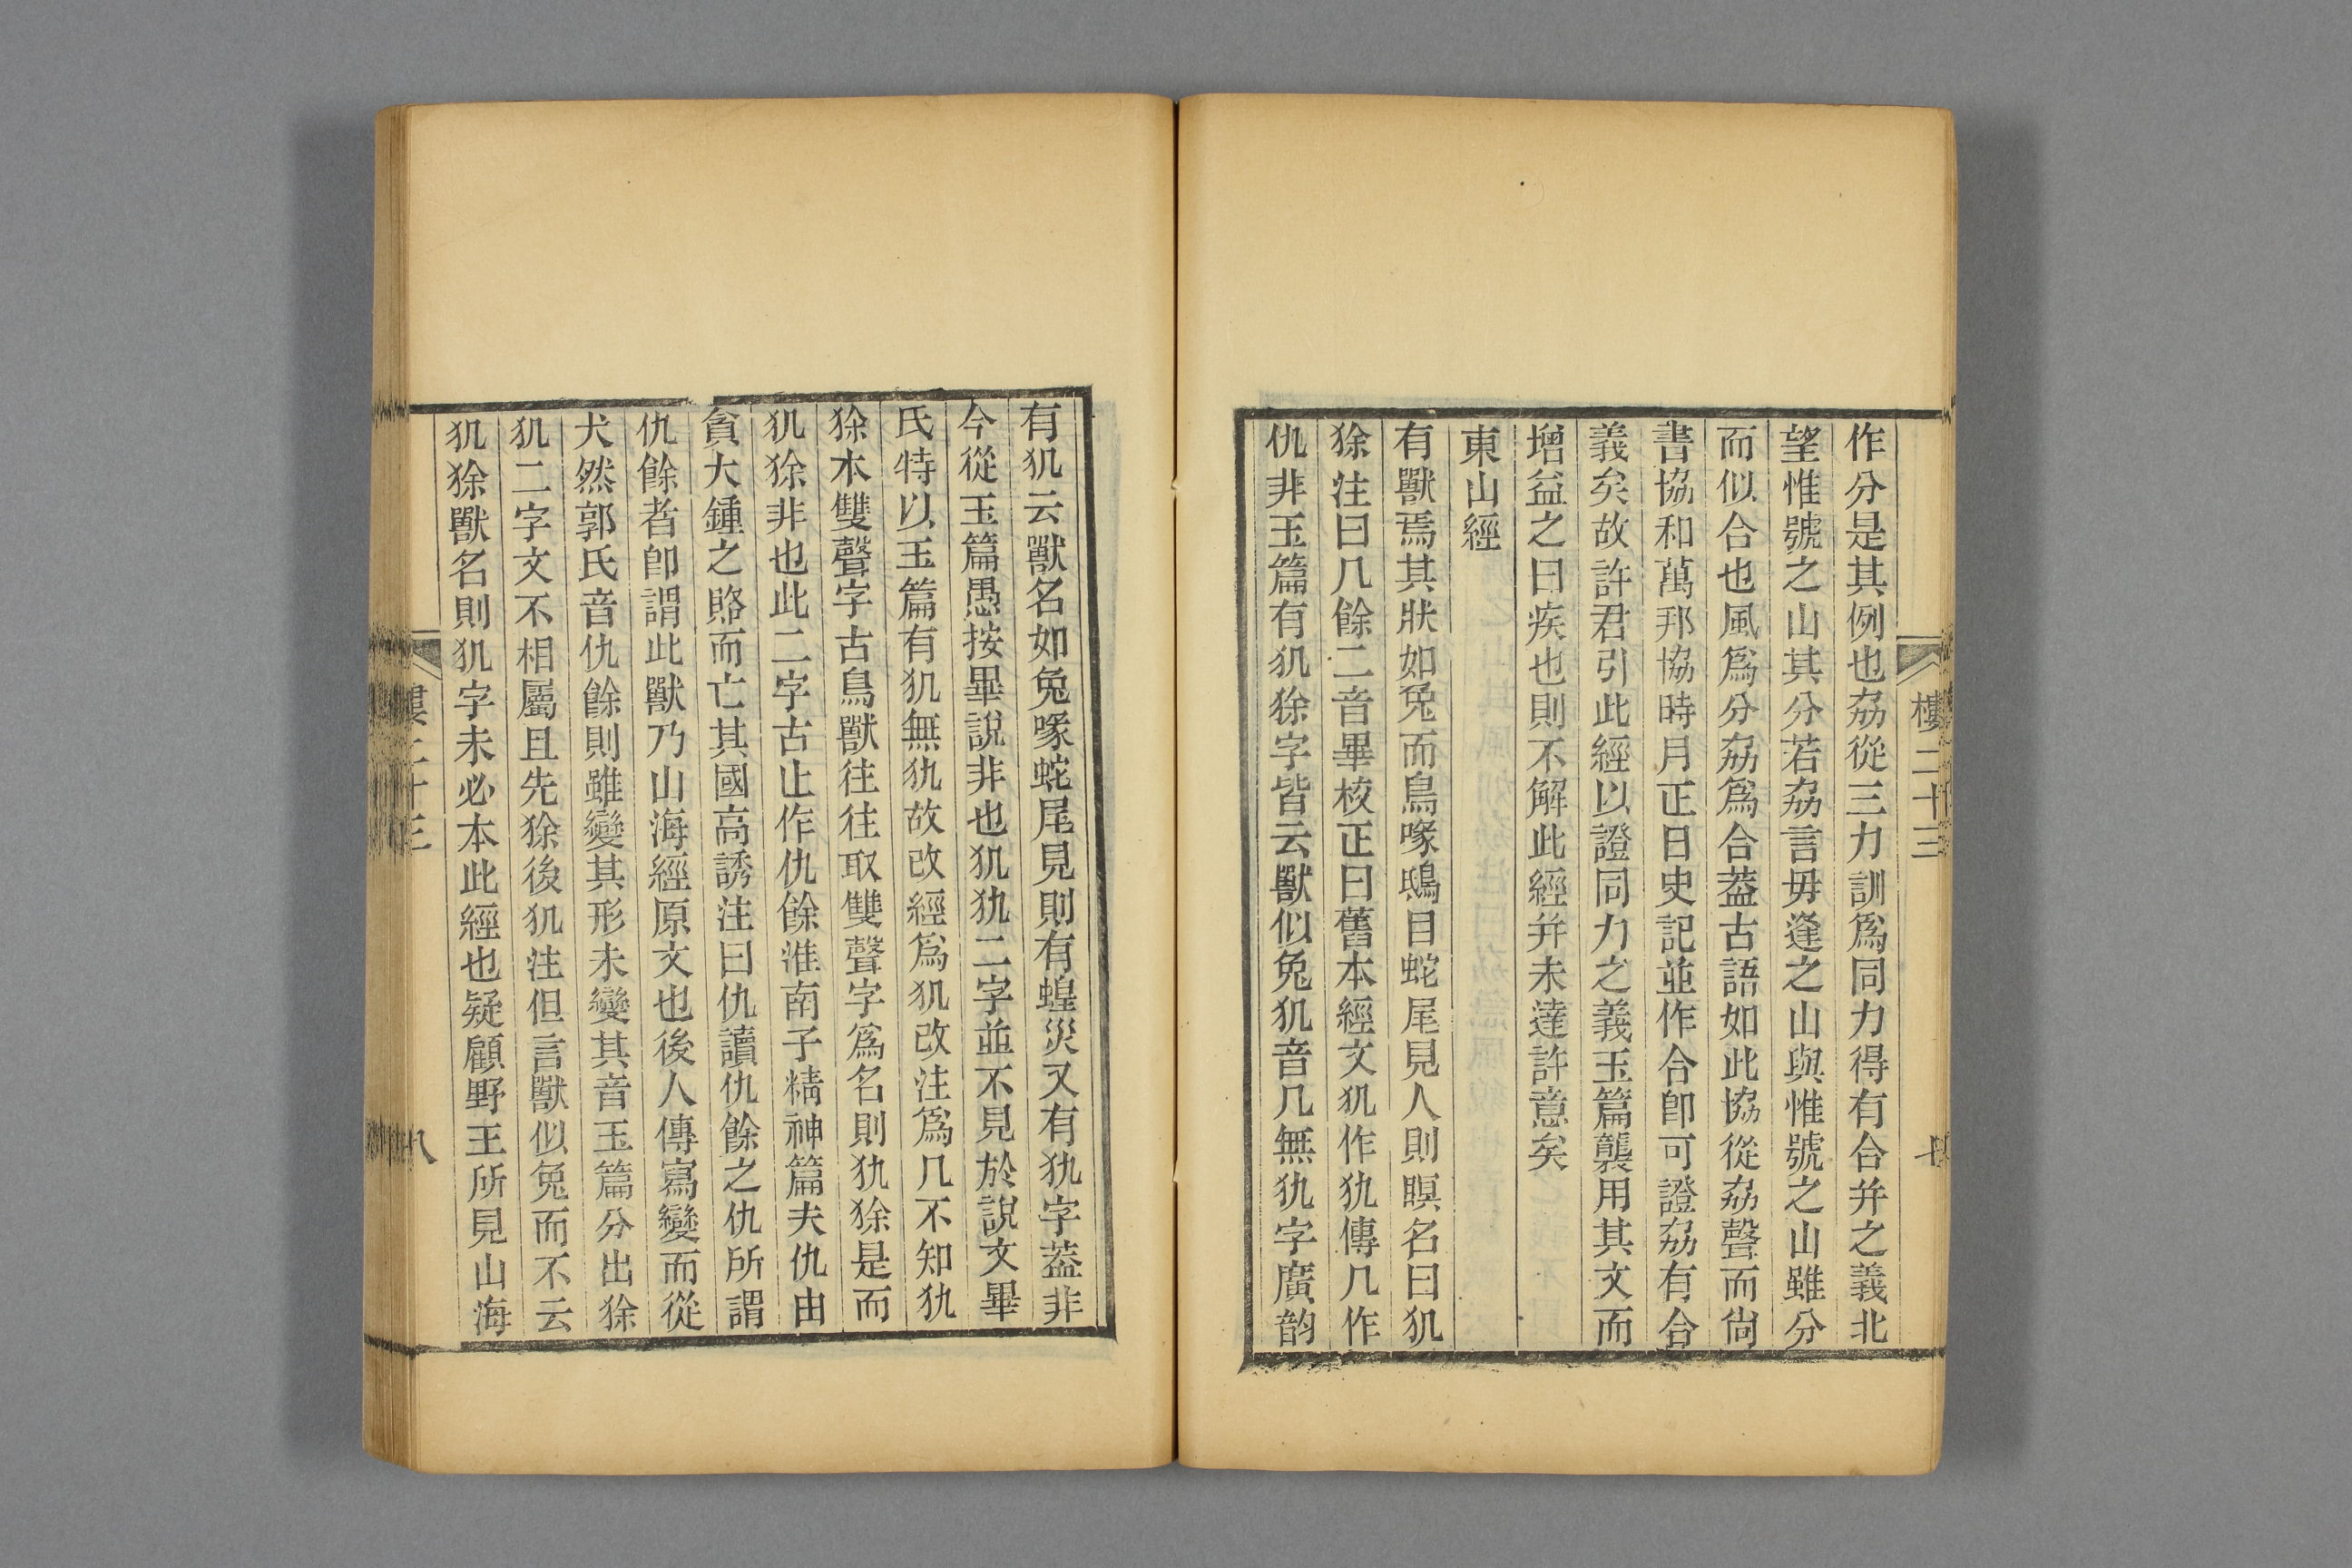 樓二十三
七
作分是其例也劦從三力訓爲同力得有合幷之義北
望惟號之山其分若劦言毋逢之山與惟號之山雖分
而似合也風爲分劦爲合葢古語如此協從劦聲而尙
書協和萬邦協時月正日史記並作合卽可證劦有合
義矣故許君引此經以證同力之義玉篇襲用其文而
增益之曰疾也則不解此經幷未達許意矣
東山經
有獸焉其狀如兔而鳥喙鴟目蛇尾見人則瞑名曰犰
狳注曰几餘二音畢校正曰舊本經文犰作㹤傳几作
仇非玉篇有犰狳字皆云獸似兔犰音几無㹤字廣韵
有犰云獸名如兔喙蛇尾見則有蝗災又有㹤字葢非
今從玉篇愚按畢說非也犰㹤二字並不見於說文畢
氏特以玉篇有犰無㹤故改經爲犰改注爲几不知㹤
狳本雙聲字古鳥獸往往取雙聲字爲名則㹤狳是而
犰狳非也此二字古止作仇餘淮南子精神篇夫仇由
貪大鍾之賂而亡其國高誘注曰仇讀仇餘之仇所謂
仇餘者卽謂此獸乃山海經原文也後人傳寫變而從
犬然郭氏音仇餘則雖變其形未變其音玉篇分出狳
犰二字文不相屬且先狳後犰注但言獸似兔而不云
犰狳獸名則犰字未必本此經也疑顧野王所見山海
樓二十三
八